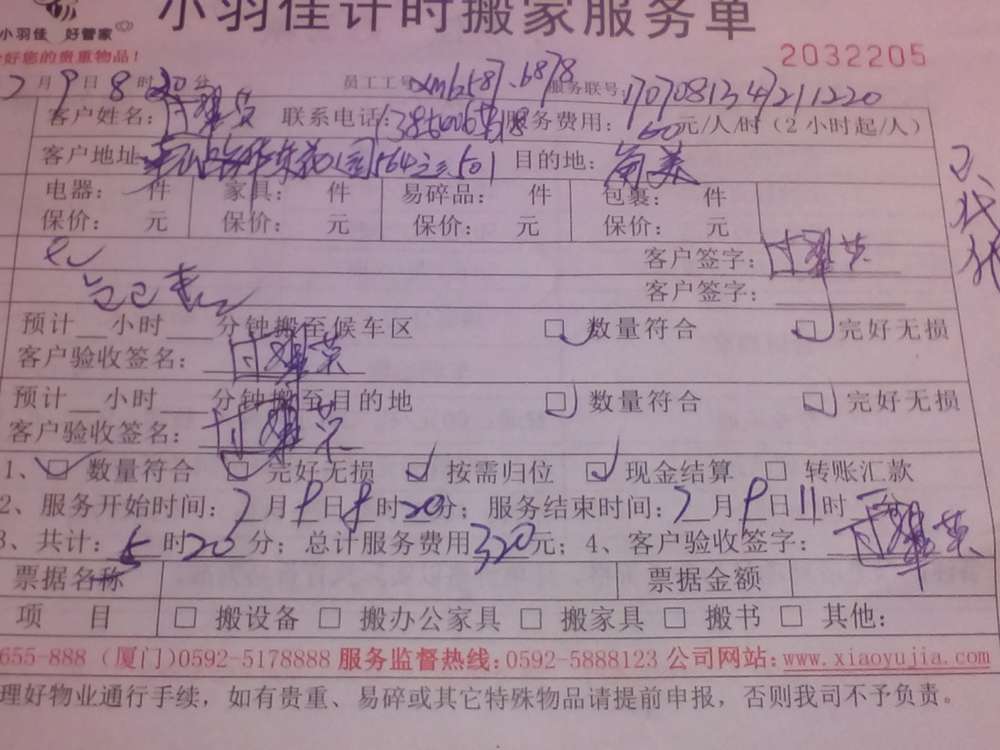 小羽佳计时搬家服务单
小羽佳 好管家
好您的贵重物品！
2032205
7月9日8时20分 员工工号 服务联号：
客户姓名： 联系电话： 服务费用：60元/人/时（2小时起/人）
客户地址： 564之501 目的地：
电器： 件 家具： 件 易碎品： 件 包裹： 件
保价： 元 保价： 元 保价： 元 保价： 元
客户签字：
客户签字：
预计__小时___分钟搬至候车区 □ 数量符合 □ 完好无损
客户验收签名：
预计__小时___分钟搬至目的地 □ 数量符合 □ 完好无损
客户验收签名：
1、□ 数量符合 □ 完好无损 □ 按需归位 □ 现金结算 □ 转账汇款
2、服务开始时间：7月9日8时20分；服务结束时间：7月9日11时 分
3、共计：5时20分；总计服务费用320元；4、客户验收签字：
票据名称 票据金额
项 目 □ 搬设备 □ 搬办公家具 □ 搬家具 □ 搬书 □ 其他：
655-888（厦门）0592-5178888 服务监督热线：0592-5888123 公司网站：www.xiaoyujia.com
理好物业通行手续，如有贵重、易碎或其它特殊物品请提前申报，否则我司不予负责。